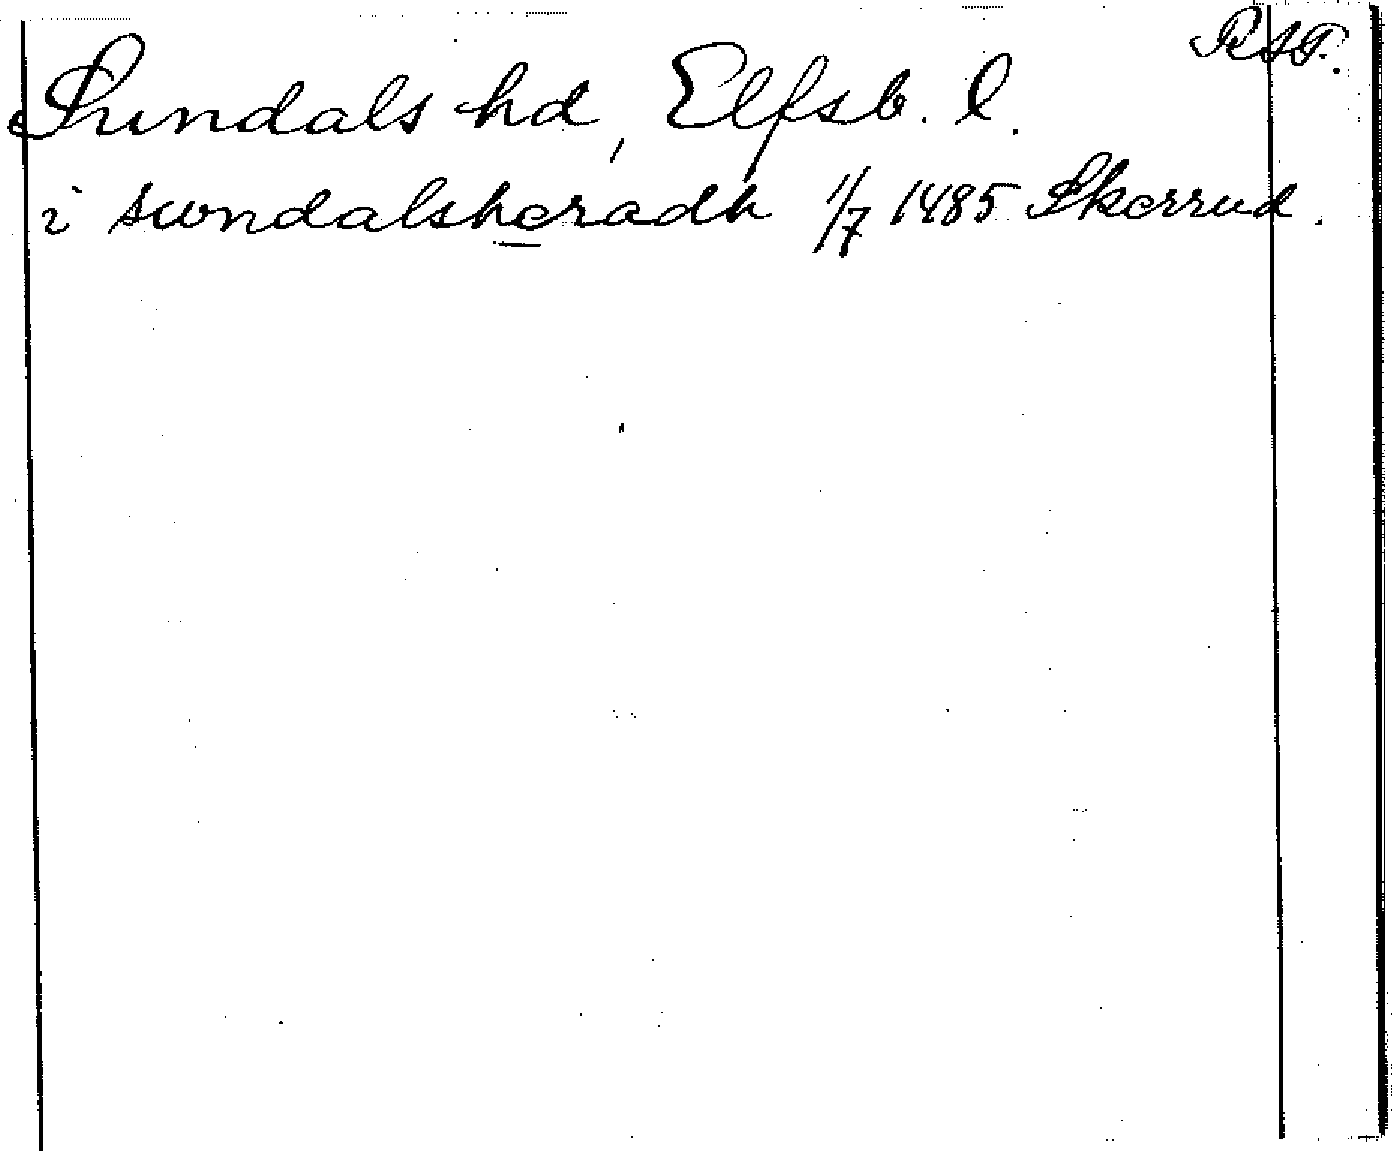 RSF.
Sundals hd, Elfsb. l.
i swndalsheradh 1/7 1485 Skerrud.